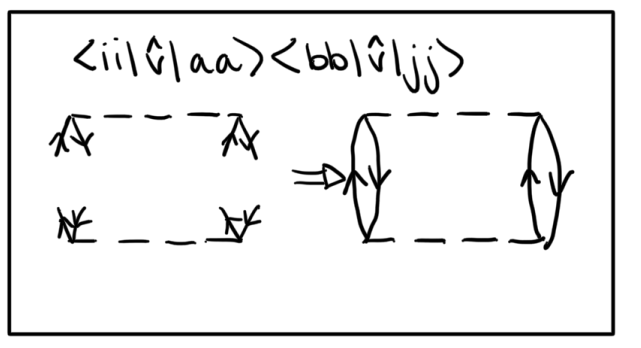 <ii|v̂|aa><bb|v̂|jj>